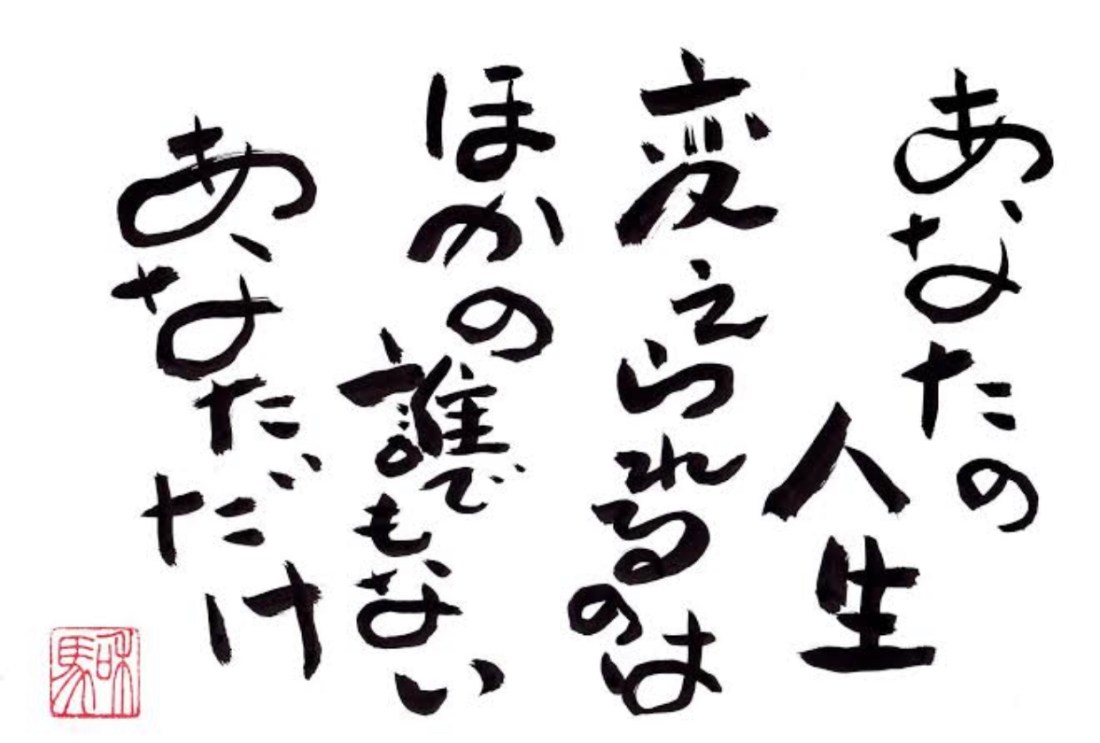 あなたの
人生
変えられるのは
ほかの
誰でもない
あなただけ